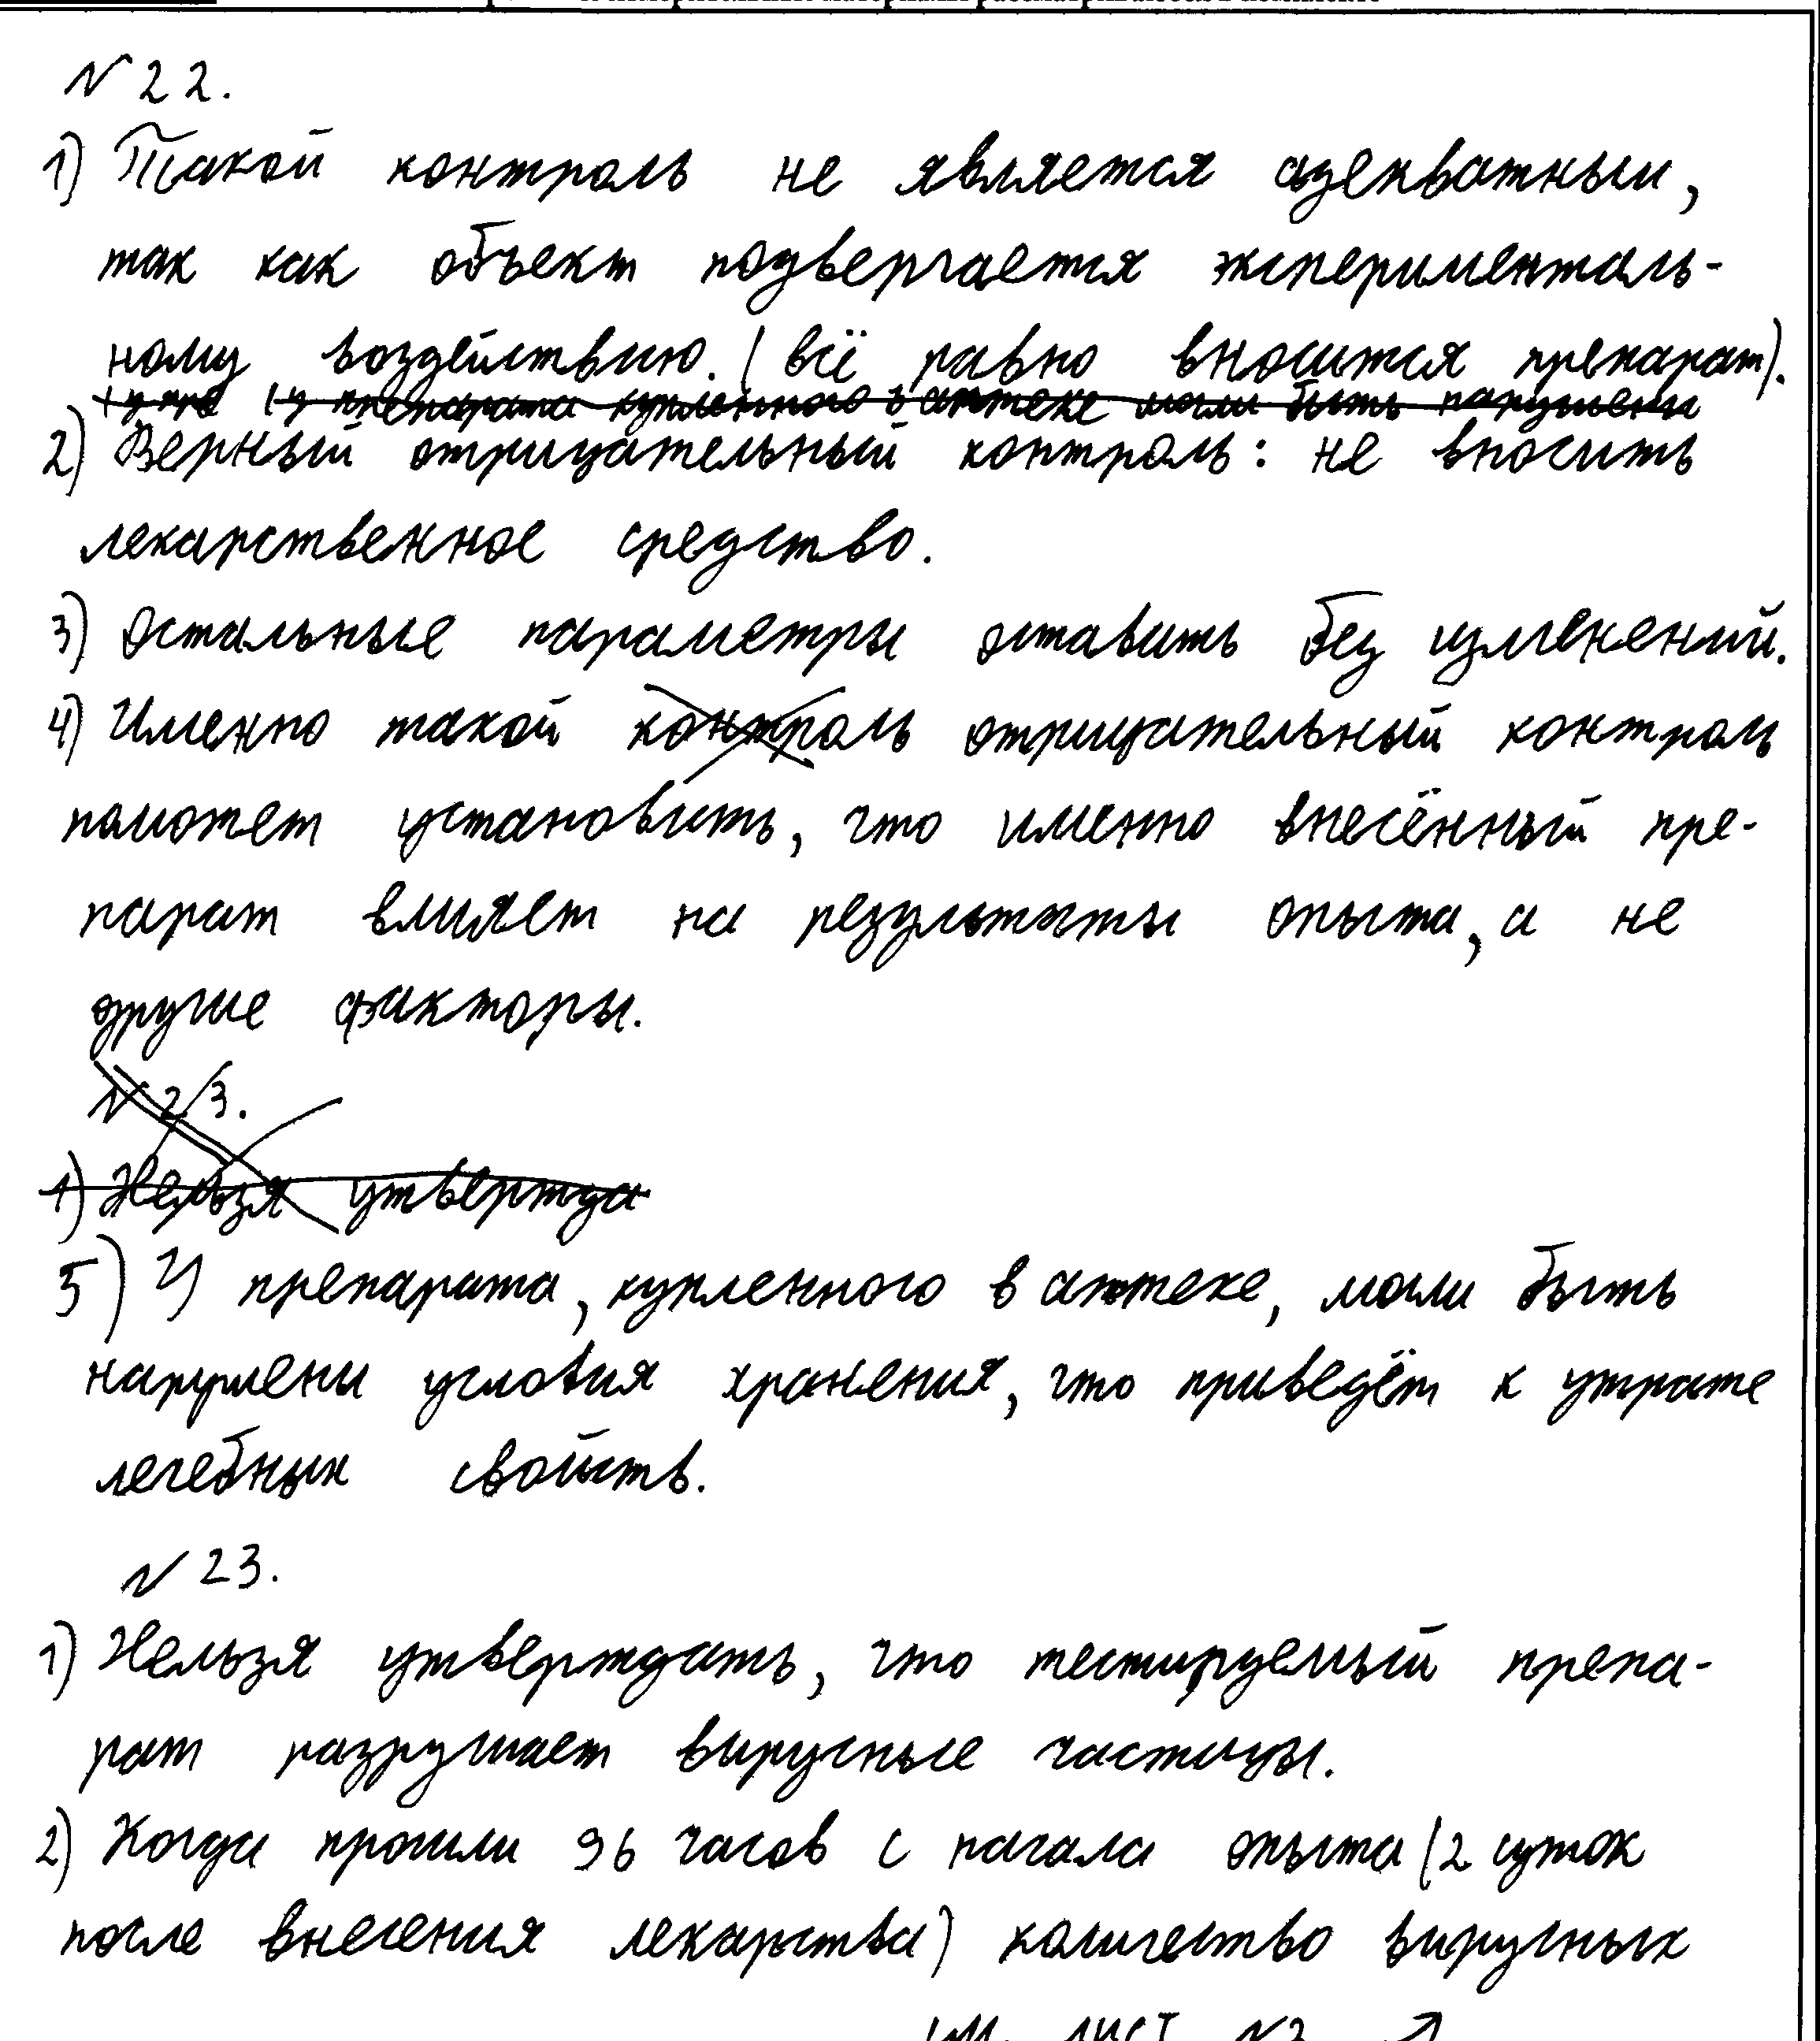 N 22.
1) Такой контроль не является адекватным,
так как объект подвергается эксперименталь-
ному воздействию. (всё равно вносится препарат).
(у препарата купленного в аптеке могли быть нарушены
2) Верный отрицательный контроль: не вносить
лекарственное средство.
3) Остальные параметры оставить без изменений.
4) Именно такой контроль отрицательный контроль
поможет установить, что именно внесённый пре-
парат влияет на результаты опыта, а не
другие факторы.
N 23.
1) Нельзя утвержда
5) У препарата, купленного в аптеке, могли быть
нарушены условия хранения, что приведёт к утрате
лечебных свойств.
N 23.
1) Нельзя утверждать, что тестируемый препа-
рат разрушает вирусные частицы.
2) Когда прошли 96 часов с начала опыта (2 суток
после внесения лекарства) количество вирусных
см. лист N2